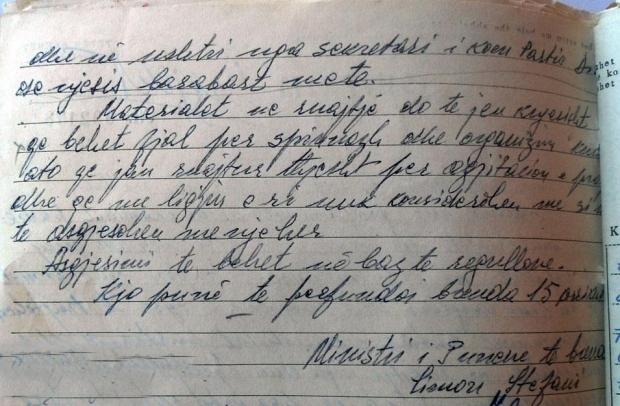 dhe në ushtri nga sekretari i kom Partis
ose njesis barabart me te.
Materialet ne ruajtje do te jen kryesisht
qe behet fjal per spiunazh dhe organizim
ato qe jan ruajtur thjesht per agjitacion e
dhe qe me ligjin e ri nuk konsiderohen me si
te asgjesohen menjeher
Asgjesimi te behet në baz te regullave.
Kjo punë te perfundoj brenda 15
Ministri i Puneve te brend
Simon Stefani